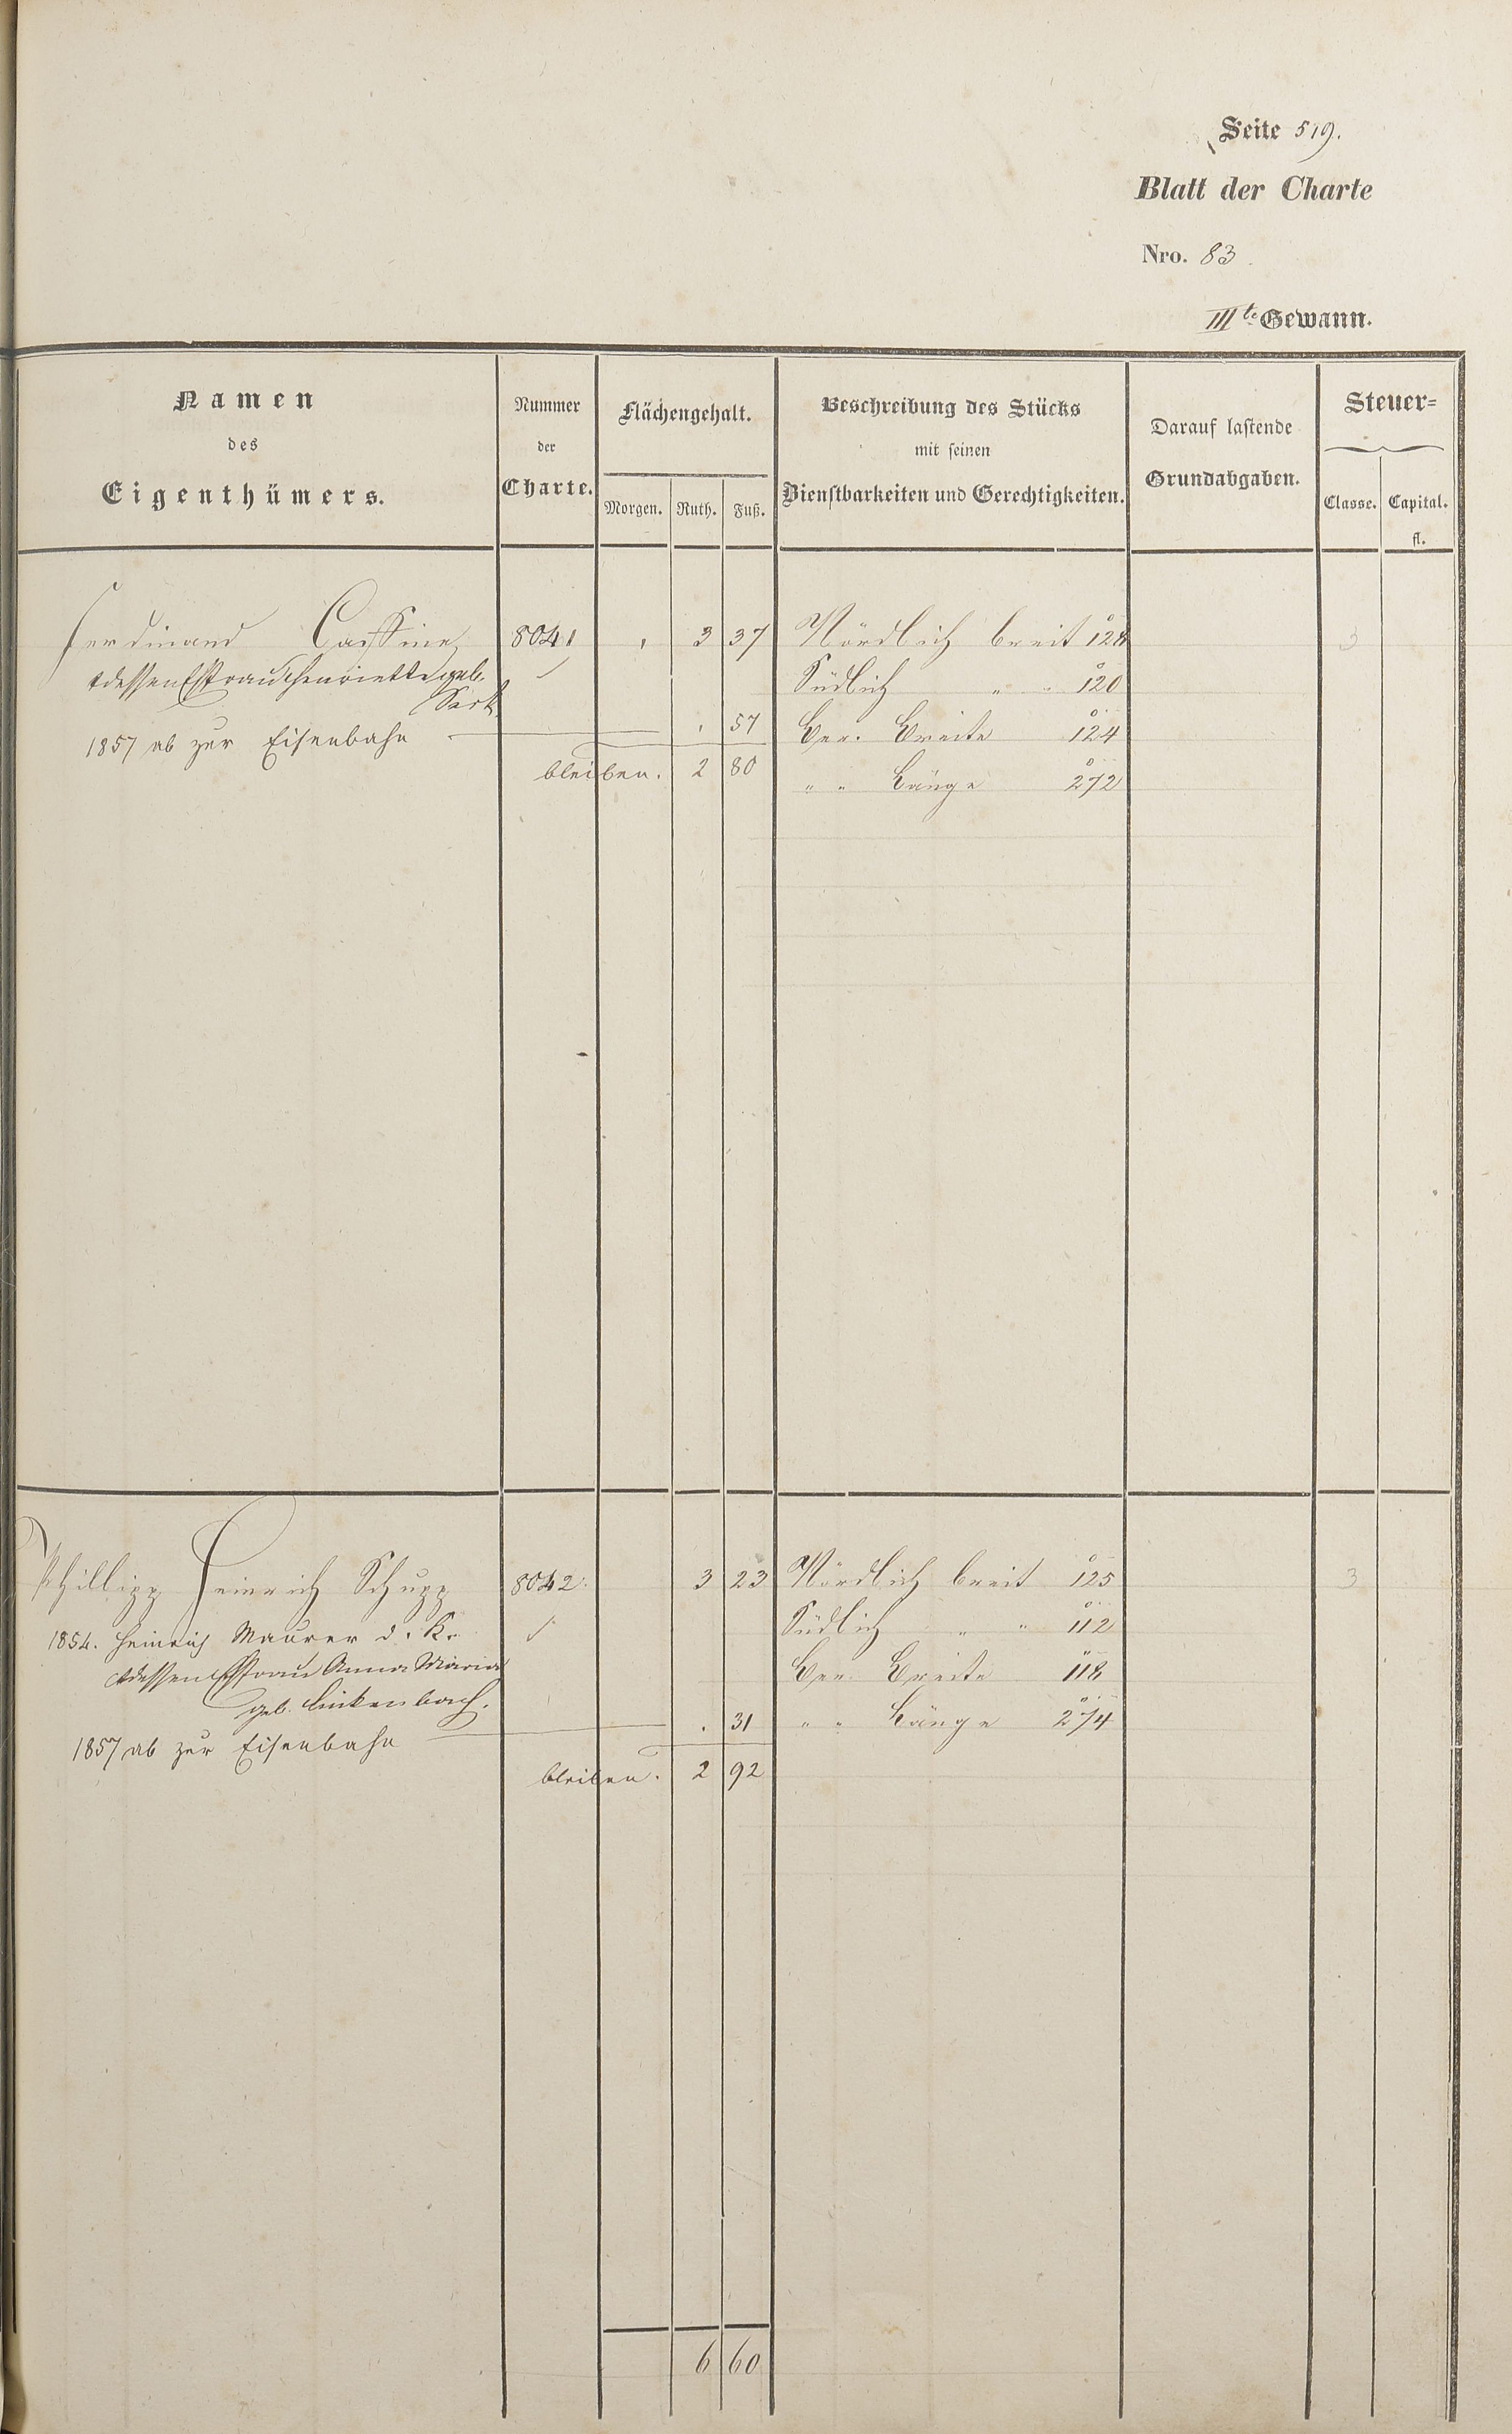 Seite 519.
Blatt der Charte
Nro. 83.
III te Gewann.
Namen
des
Eigenthümers.
Nummer
der
Charte.
Flächengehalt.
Morgen. Ruth. Fuß.
Beschreibung des Stücks
mit seinen
Dienstbarkeiten und Gerechtigkeiten.
Darauf lastende
Grundabgaben.
Steuer=
Classe. Capital.
fl.
Ferdinand 8041 3 37 Nördlich breit 128 3
dessen Ehefrau Henriette geb. Südlich " 120
57 Ger. Breite 124
1857 ab zur Eisenbahn
bleiben. 2 80 " " Länge 272
Phillipp Heinrich Schupp 8042. 3 23 Nördlich breit 125 3
1854. Heinrich Maurer d. K. Südlich " " 112
dessen Ehefrau Anna Maria Ger. Breite 118
geb. Linkenbach. . 31 " " Länge 274
1857 ab zur Eisenbahn
bleiben. 2 92
6 60